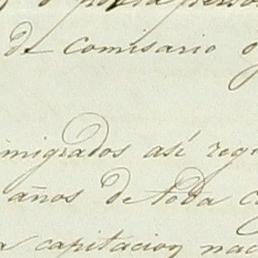 de comisario
migrados así reg
años de toda c
a capitacion nac